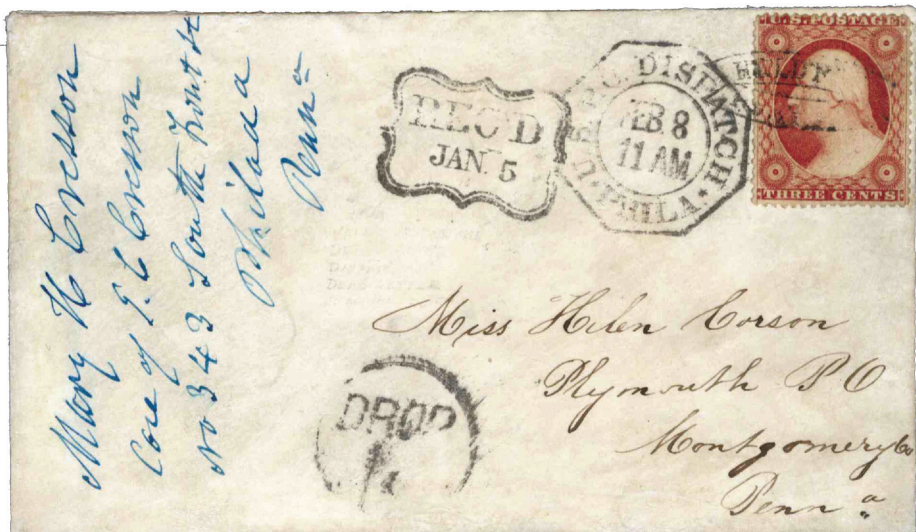 Mary H Cresson
Care of J. C Cresson
No 343 South Front St
Philada
Penn a
REC'D
JAN. 5
U.S.P.O. DISPATCH
FEB 8
11 AM
PHILA.
U.S. POSTAGE
THREE CENTS
Miss Helen Corson
Plymouth P O
Montgomery Co
Penn a
DROP